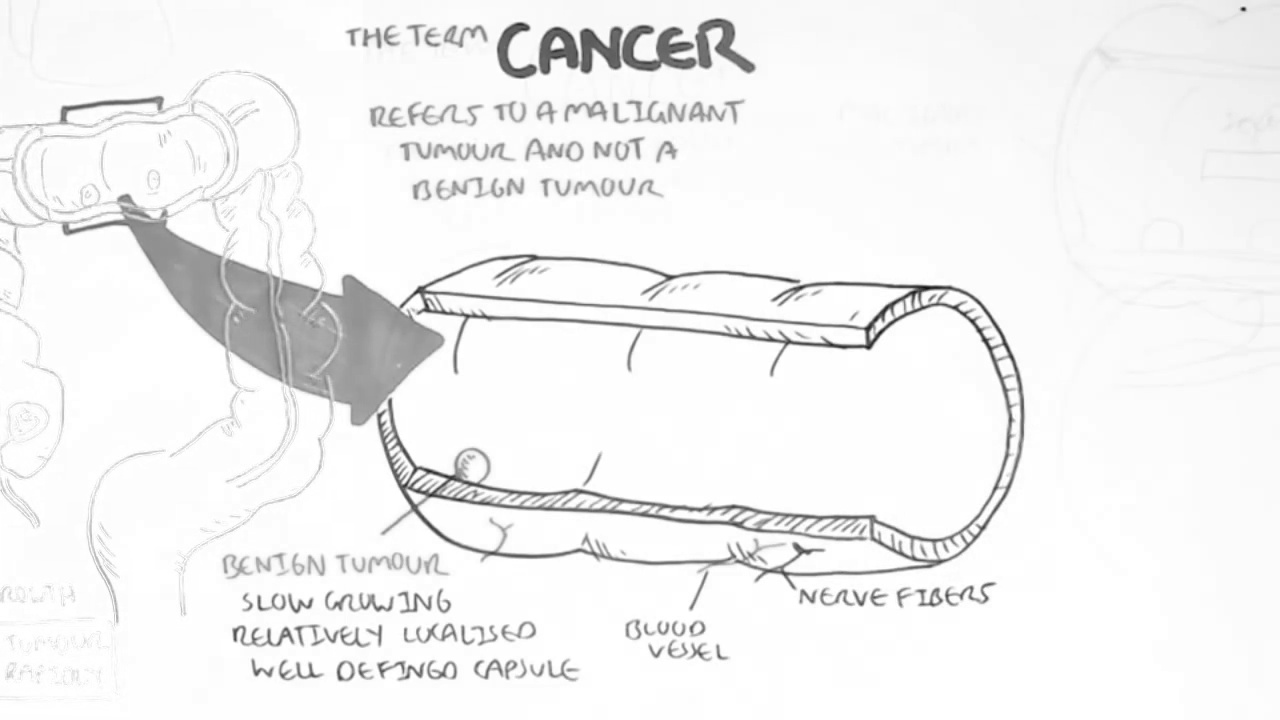 THE TERM CANCER
REFERS TO A MALIGNANT
TUMOUR AND NOT A
BENIGN TUMOUR
BENIGN TUMOUR
SLOW GROWING
RELATIVELY LOCALISED
WELL DEFINED CAPSULE
BLOOD
VESSEL
NERVE FIBERS
TUMOUR